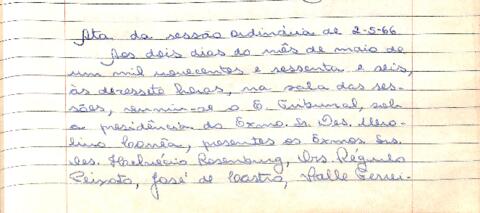 Ata da sessão ordinária de 2-5-66
Aos dois dias do mês de maio de
um mil novecentos e sessenta e seis,
às dezessete horas, na sala das ses-
sões, reuniu-se o E. Tribunal, sob
a presidência do Exmo. Sr. Des. Mero-
lino Corrêa, presentes os Exmos Srs.
Des. Helvécio Rosenburg, Drs. Régulo
Peixoto, José de Castro, Valle Ferrei-